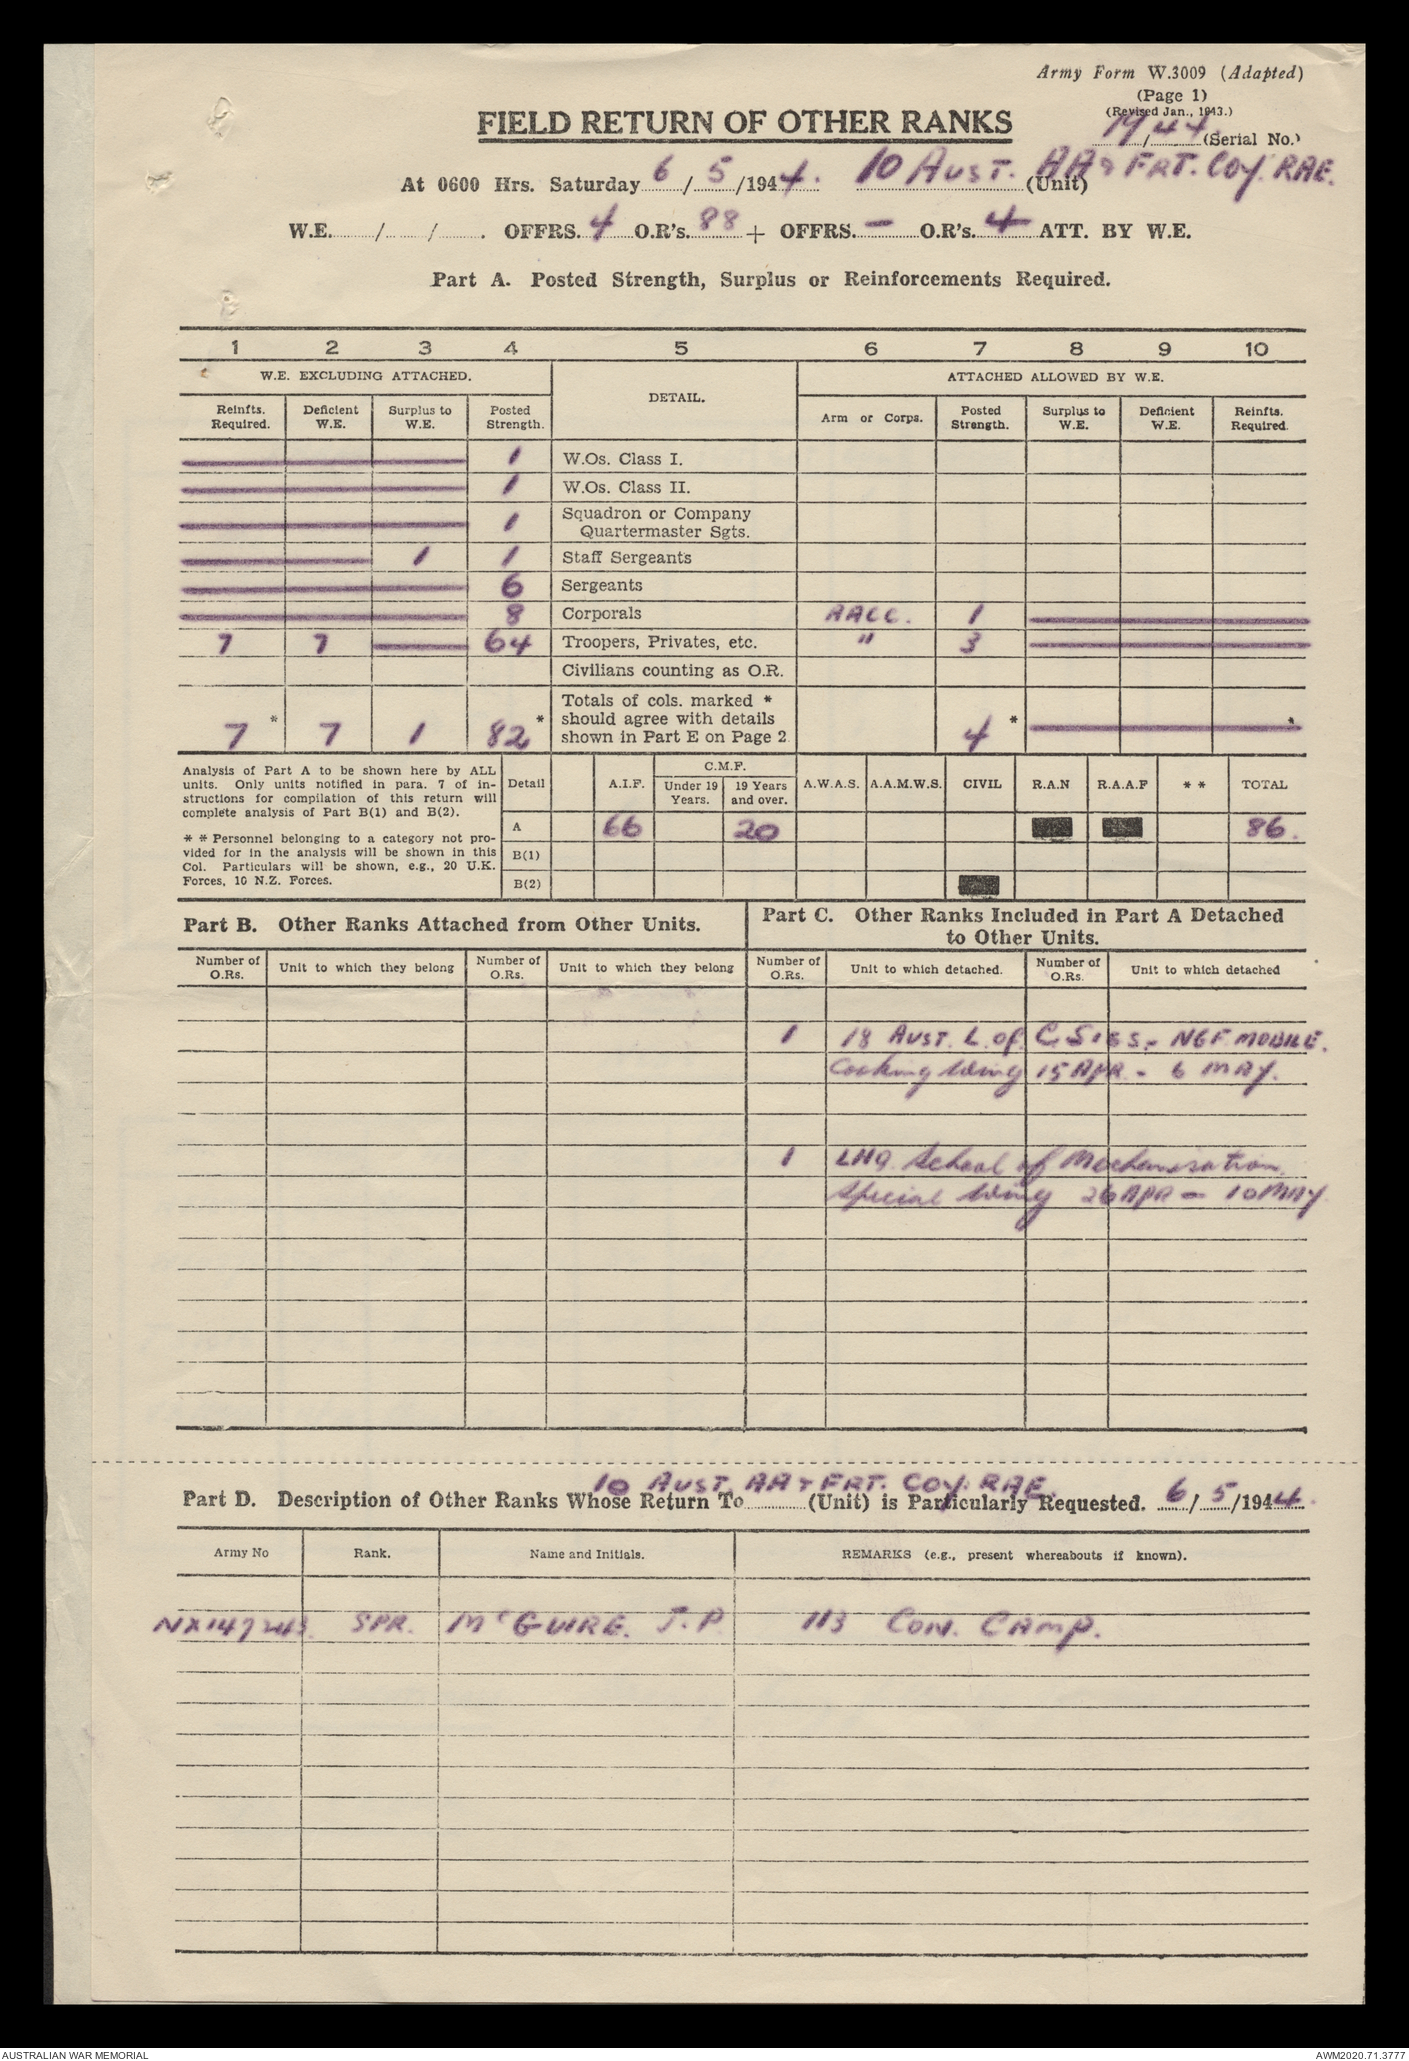 Army Form W.3009 (Adapted)
(Page 1)
(Revised Jan., 1943.)
FIELD RETURN OF OTHER RANKS
19/44 (Serial No.)
At 0600 Hrs. Saturday 6/5/1944. 10 AUST. AA & FRT. COY. RAE. (Unit)
W.E. / / . OFFRS. 4 O.R's. 88 + OFFRS. — O.R's. 4 ATT. BY W.E.
Part A. Posted Strength, Surplus or Reinforcements Required.
1 2 3 4 5 6 7 8 9 10
W.E. EXCLUDING ATTACHED. DETAIL. ATTACHED ALLOWED BY W.E.
Reinfts. Required. Deficient W.E. Surplus to W.E. Posted Strength. Arm or Corps. Posted Strength. Surplus to W.E. Deficient W.E. Reinfts. Required.
— — — 1 W.Os. Class I.
— — — 1 W.Os. Class II.
— — — 1 Squadron or Company Quartermaster Sgts.
— — 1 1 Staff Sergeants
— — — 6 Sergeants
— — — 8 Corporals AACC. 1 — — —
7 7 — 64 Troopers, Privates, etc. " 3 — — —
Civilians counting as O.R.
7 * 7 1 82 * Totals of cols. marked * should agree with details shown in Part E on Page 2 4 * — — — *
Analysis of Part A to be shown here by ALL
units. Only units notified in para. 7 of in-
structions for compilation of this return will
complete analysis of Part B(1) and B(2).
* * Personnel belonging to a category not pro-
vided for in the analysis will be shown in this
Col. Particulars will be shown, e.g., 20 U.K.
Forces, 10 N.Z. Forces.
Detail A.I.F. C.M.F. Under 19 Years. 19 Years and over. A.W.A.S. A.A.M.W.S. CIVIL R.A.N R.A.A.F * * TOTAL
A 66 20 86.
B(1)
B(2)
Part B. Other Ranks Attached from Other Units.
Part C. Other Ranks Included in Part A Detached
to Other Units.
Number of O.Rs. Unit to which they belong Number of O.Rs. Unit to which they belong Number of O.Rs. Unit to which detached. Number of O.Rs. Unit to which detached
1 18 AUST. L. of C. SIGS - NGF MOBILE.
Cooking Wing 15 APR - 6 MAY.
1 LHQ. School of Mechanisation.
Special Wing 26 APR - 10 MAY
Part D. Description of Other Ranks Whose Return To 10 AUST. AA & FRT. COY. RAE. (Unit) is Particularly Requested. 6/5/1944.
Army No Rank. Name and Initials. REMARKS (e.g., present whereabouts if known).
NX147243. SPR. McGUIRE. J.P. 113 CON. CAMP.
AUSTRALIAN WAR MEMORIAL AWM2020.71.3777